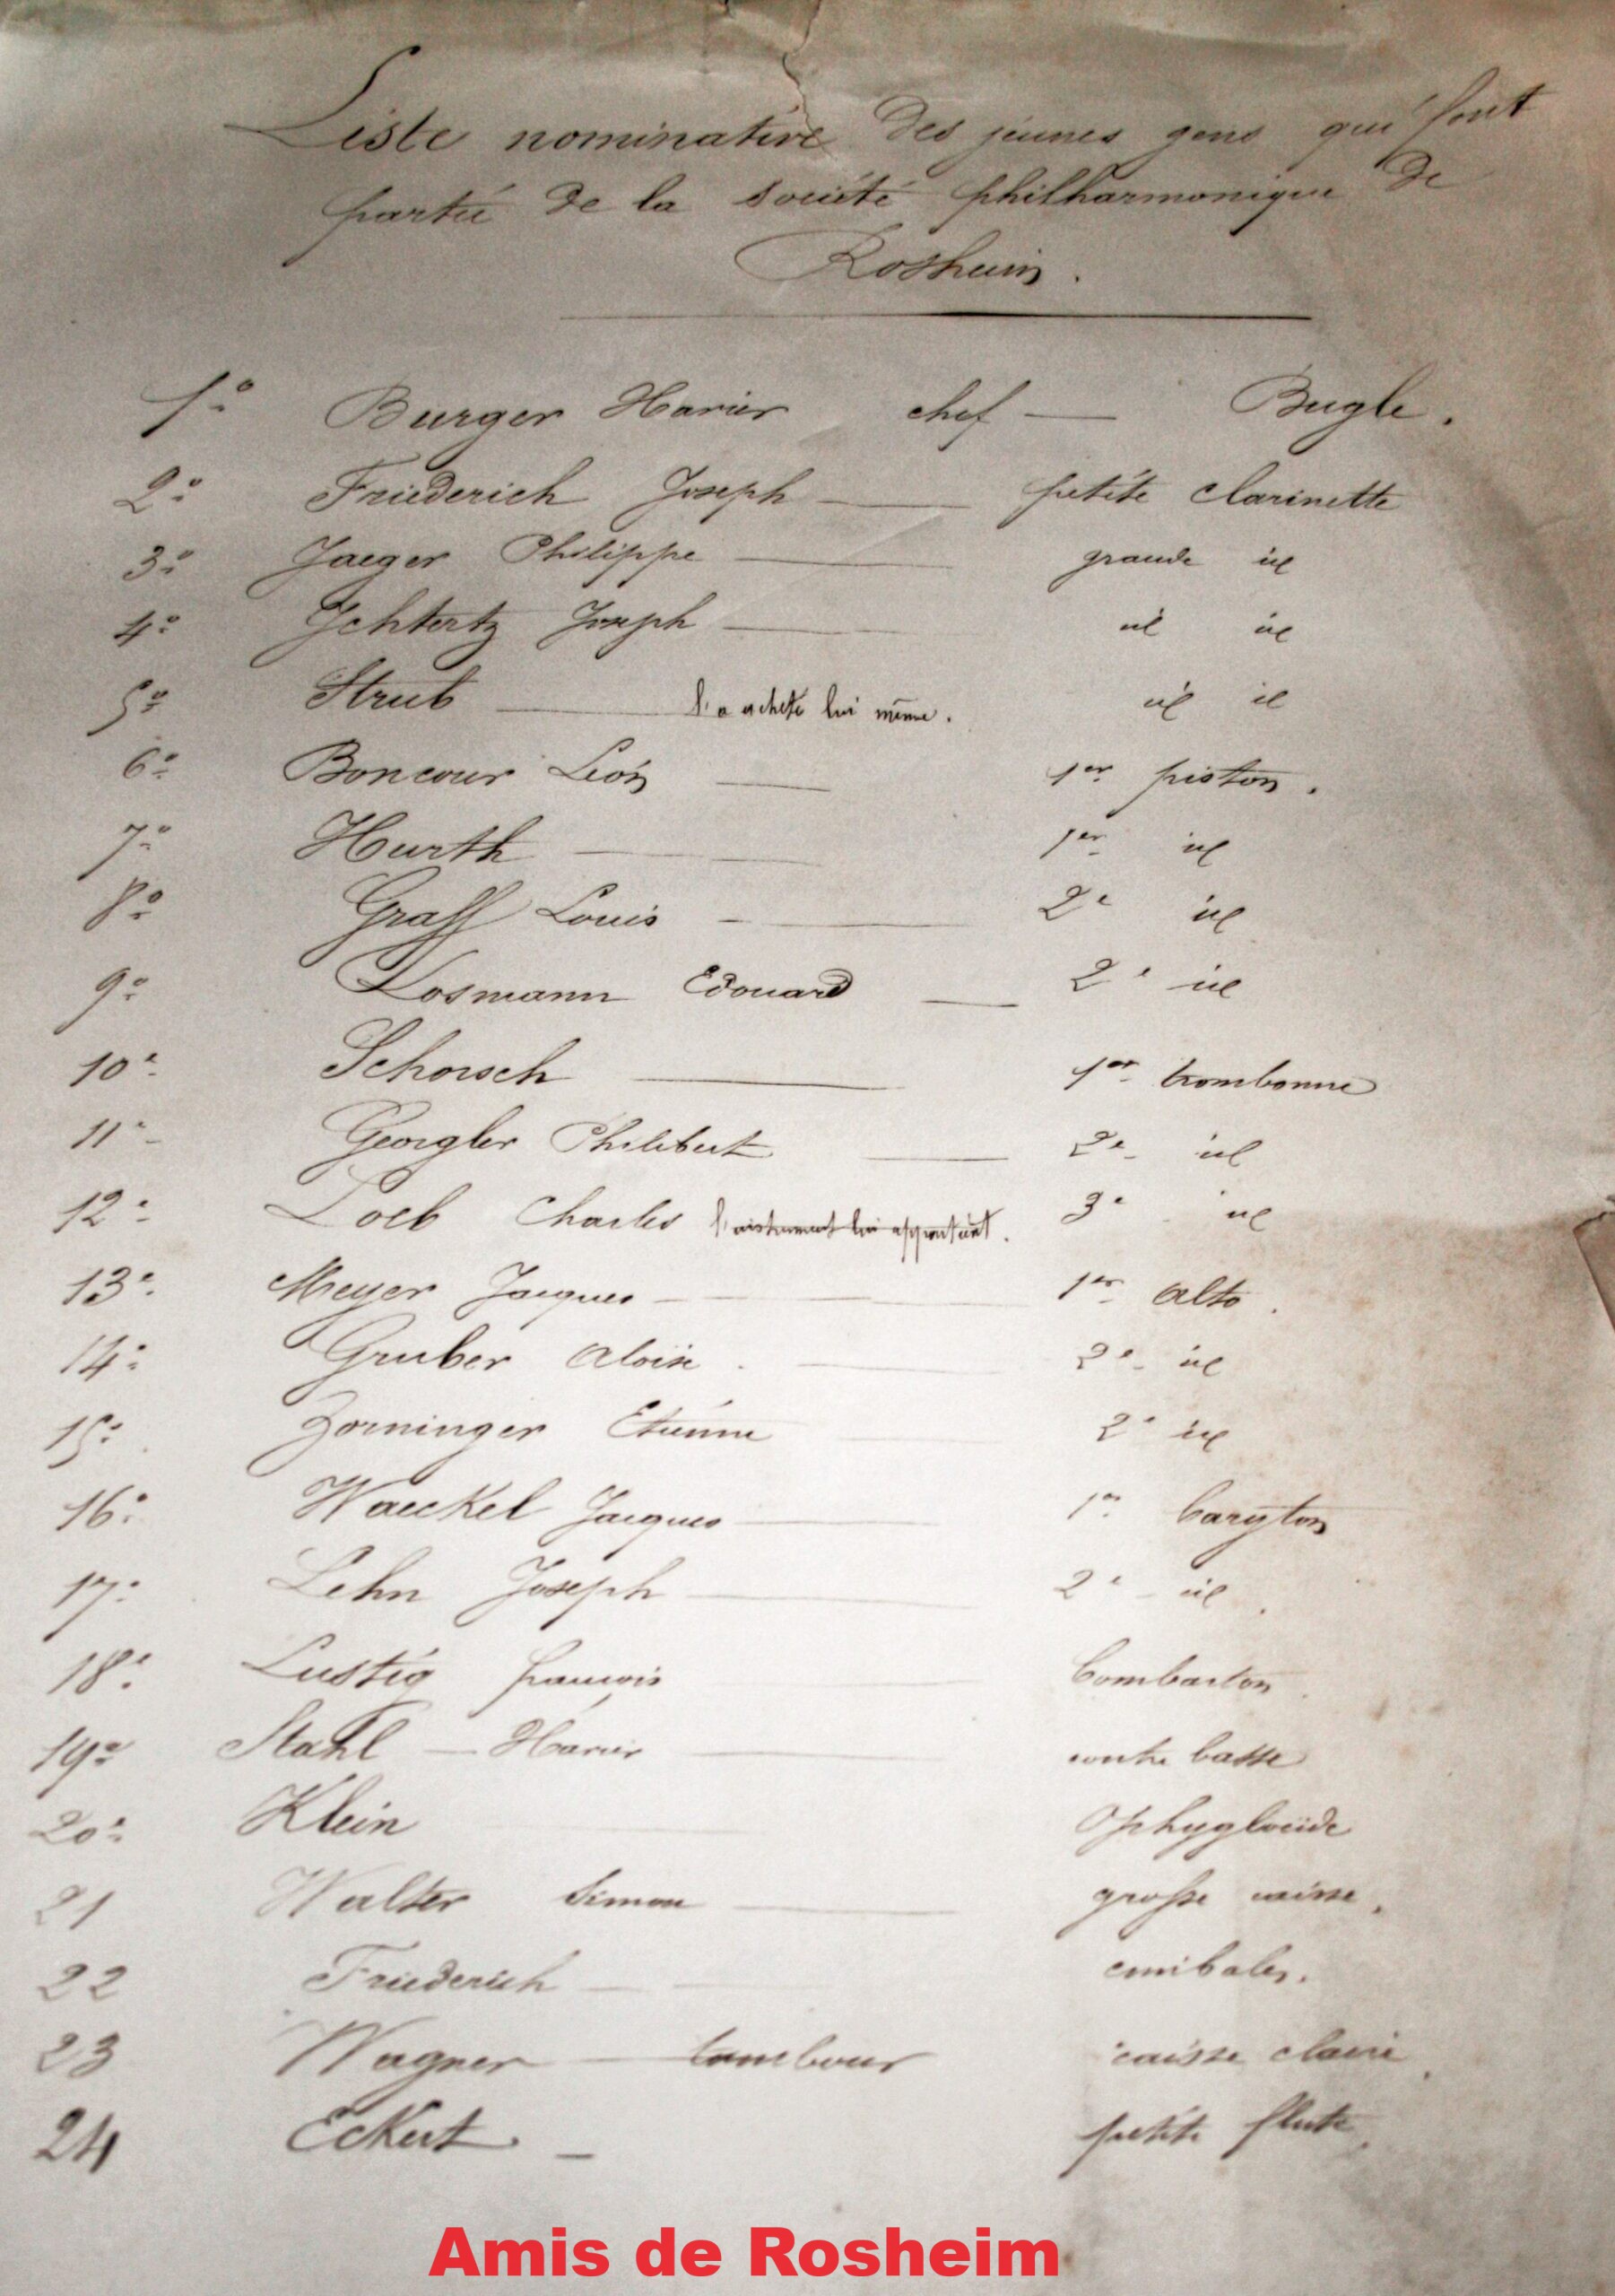 Liste nominative des jeunes gens qui font
partie de la société philharmonique de
Rosheim.
1° Burger Xavier chef — Bugle.
2° Friederich Joseph — petite clarinette
3° Jaeger Philippe — grande id
4° Ichtertz Joseph — id id
5° Strub — l'a acheté lui même. id id
6° Boncour Léon — 1er piston.
7° Hurth — 1er id
8° Graff Louis — 2e id
9° Losmann Edouard — 2e id
10° Schorsch — 1er trombonne
11° Georgler Philibert — 2e id
12° Loeb Charles l'instrument lui appartient. 3e id
13° Meyer Jacques — 1er alto.
14° Gruber Aloïse. — 2e id
15° Zorninger Etienne 2e id
16° Waeckel Jacques — 1er baryton
17° Lehn Joseph — 2e id.
18° Lustig françois — bombardon
19° Stahl — Xavier — contre basse
20° Klein — Ophygloïde
21 Walter Simon — grosse caisse.
22 Friederich — cimbales.
23 Wagner — tambour caisse claire
24 Eckert. — petite flute
Amis de Rosheim